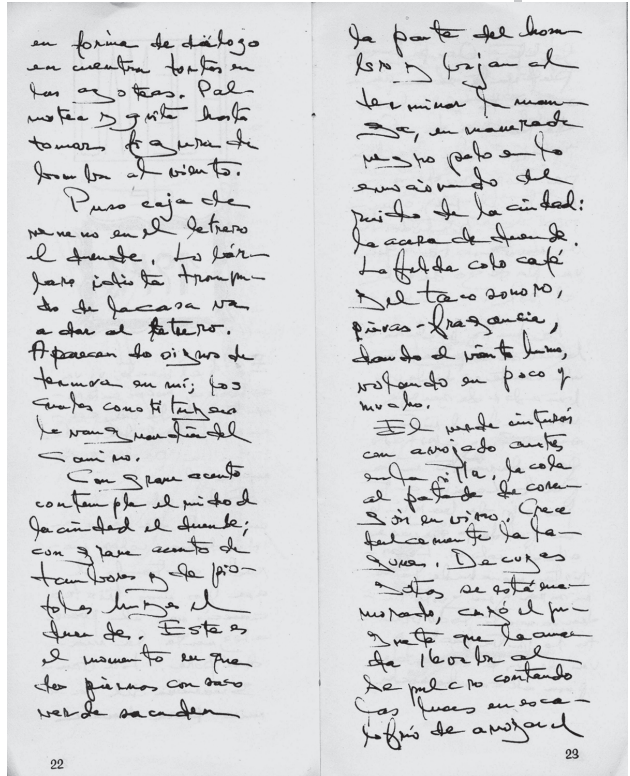 en forma de diálogo
en cuentra tontos en
las azoteas. Pal-
motea y grita hasta
tomars figura de
bomba al viento.
Puso caja de
veneno en el letrero
el duende. Lo bár-
baro idiota trompu-
do de la casa va
a dar al letrero.
Aparecen do signos de
ternura en mi; los
cuales constituyero
la vanguardia del
Camino.
Con grave acento
contempla el ruido d
la ciudad el duende;
con grave acento de
tambores y de pis-
tolas
duende. Este es
el momento en que
dos piernos con saco
verde sacuden
22
la parte del hom
bro y bajan al
terminar la man
ga, enmascarado
negro pato en lo
emocionado del
ruido de la ciudad:
la acera de duende.
La falda colo café
del taco sonoro,
piernas-fragancia,
dando al viento humo,
volando en poco y
mucho.
El verde cinturón
con arrojado antes
en la silla, la cola
al de cora-
zón en vino. Crece
dulcemente la la-
guna. De cuyas
gotas se está ena-
morado, cargó el ju-
guete que la
da al
de pulcro contando
las luces en esca-
lofrío de arrojar el
23